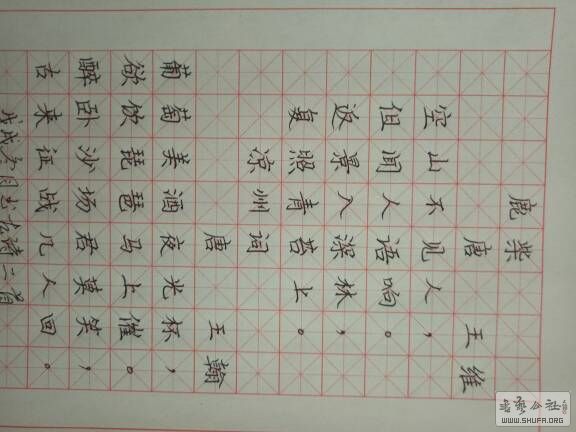 鹿柴
唐 王维
空山不见人，
但闻人语响。
返景入深林，
复照青苔上。
凉州词
唐 王翰
葡萄美酒夜光杯，
欲饮琵琶马上催。
醉卧沙场君莫笑，
古来征战几人回。
戊戌冬月古诗二首
书艺公社
WWW.SHUFA.ORG